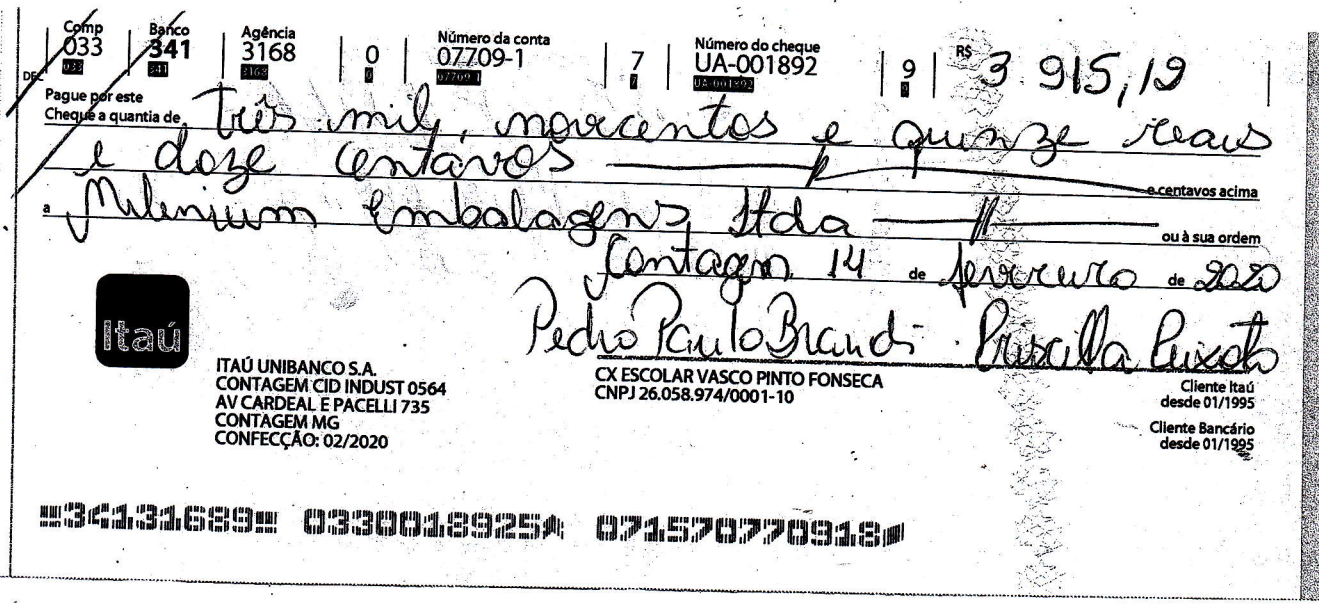 Comp Banco Agência Número da conta Número do cheque R$
033 341 3168 0 07709-1 7 UA-001892 9 3 915,12
033 341 3168 0 07709-1 7 UA-001892 9
DEC
Pague por este
Cheque a quantia de três mil, novecentos e quinze reais
e doze centavos e centavos acima
a Milenium Embalagens Ltda ou à sua ordem
Contagem 14 de fevereiro de 2020
Pedro Paulo Brandi Priscilla Peixoto
Itaú
ITAÚ UNIBANCO S.A.
CONTAGEM CID INDUST 0564
AV CARDEAL E PACELLI 735
CONTAGEM MG
CONFECÇÃO: 02/2020
CX ESCOLAR VASCO PINTO FONSECA
CNPJ 26.058.974/0001-10
Cliente Itaú
desde 01/1995
Cliente Bancário
desde 01/1995
34131689 0330018925 071570770918